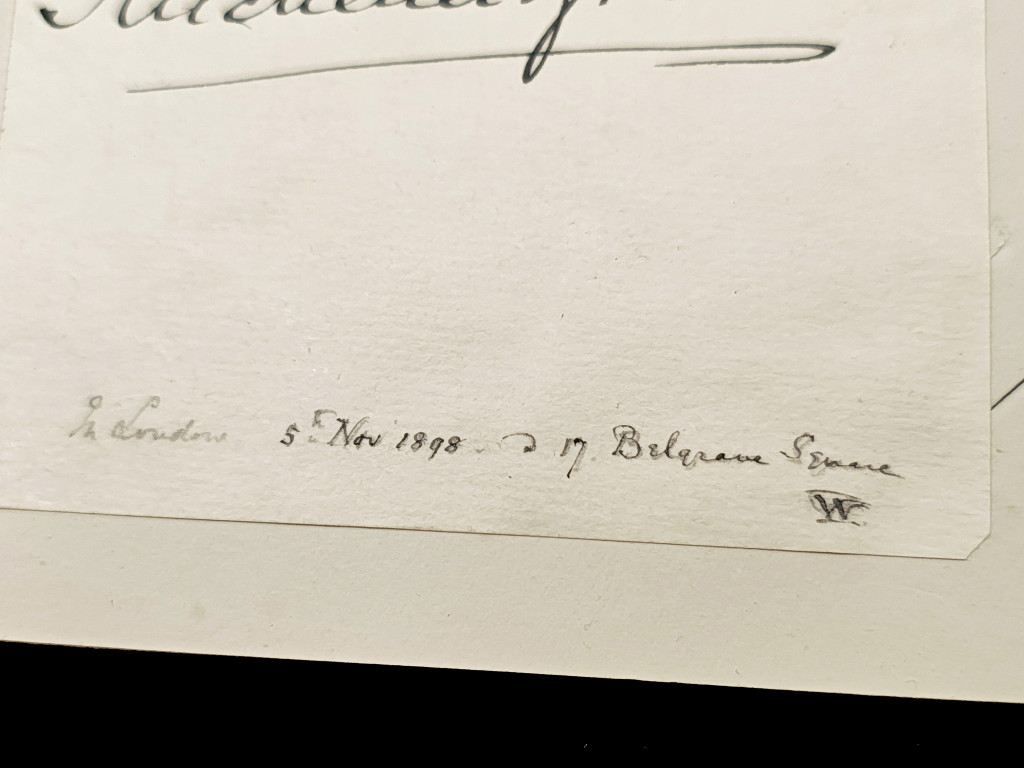 In London 5th Nov 1898 17 Belgrave Square
W.